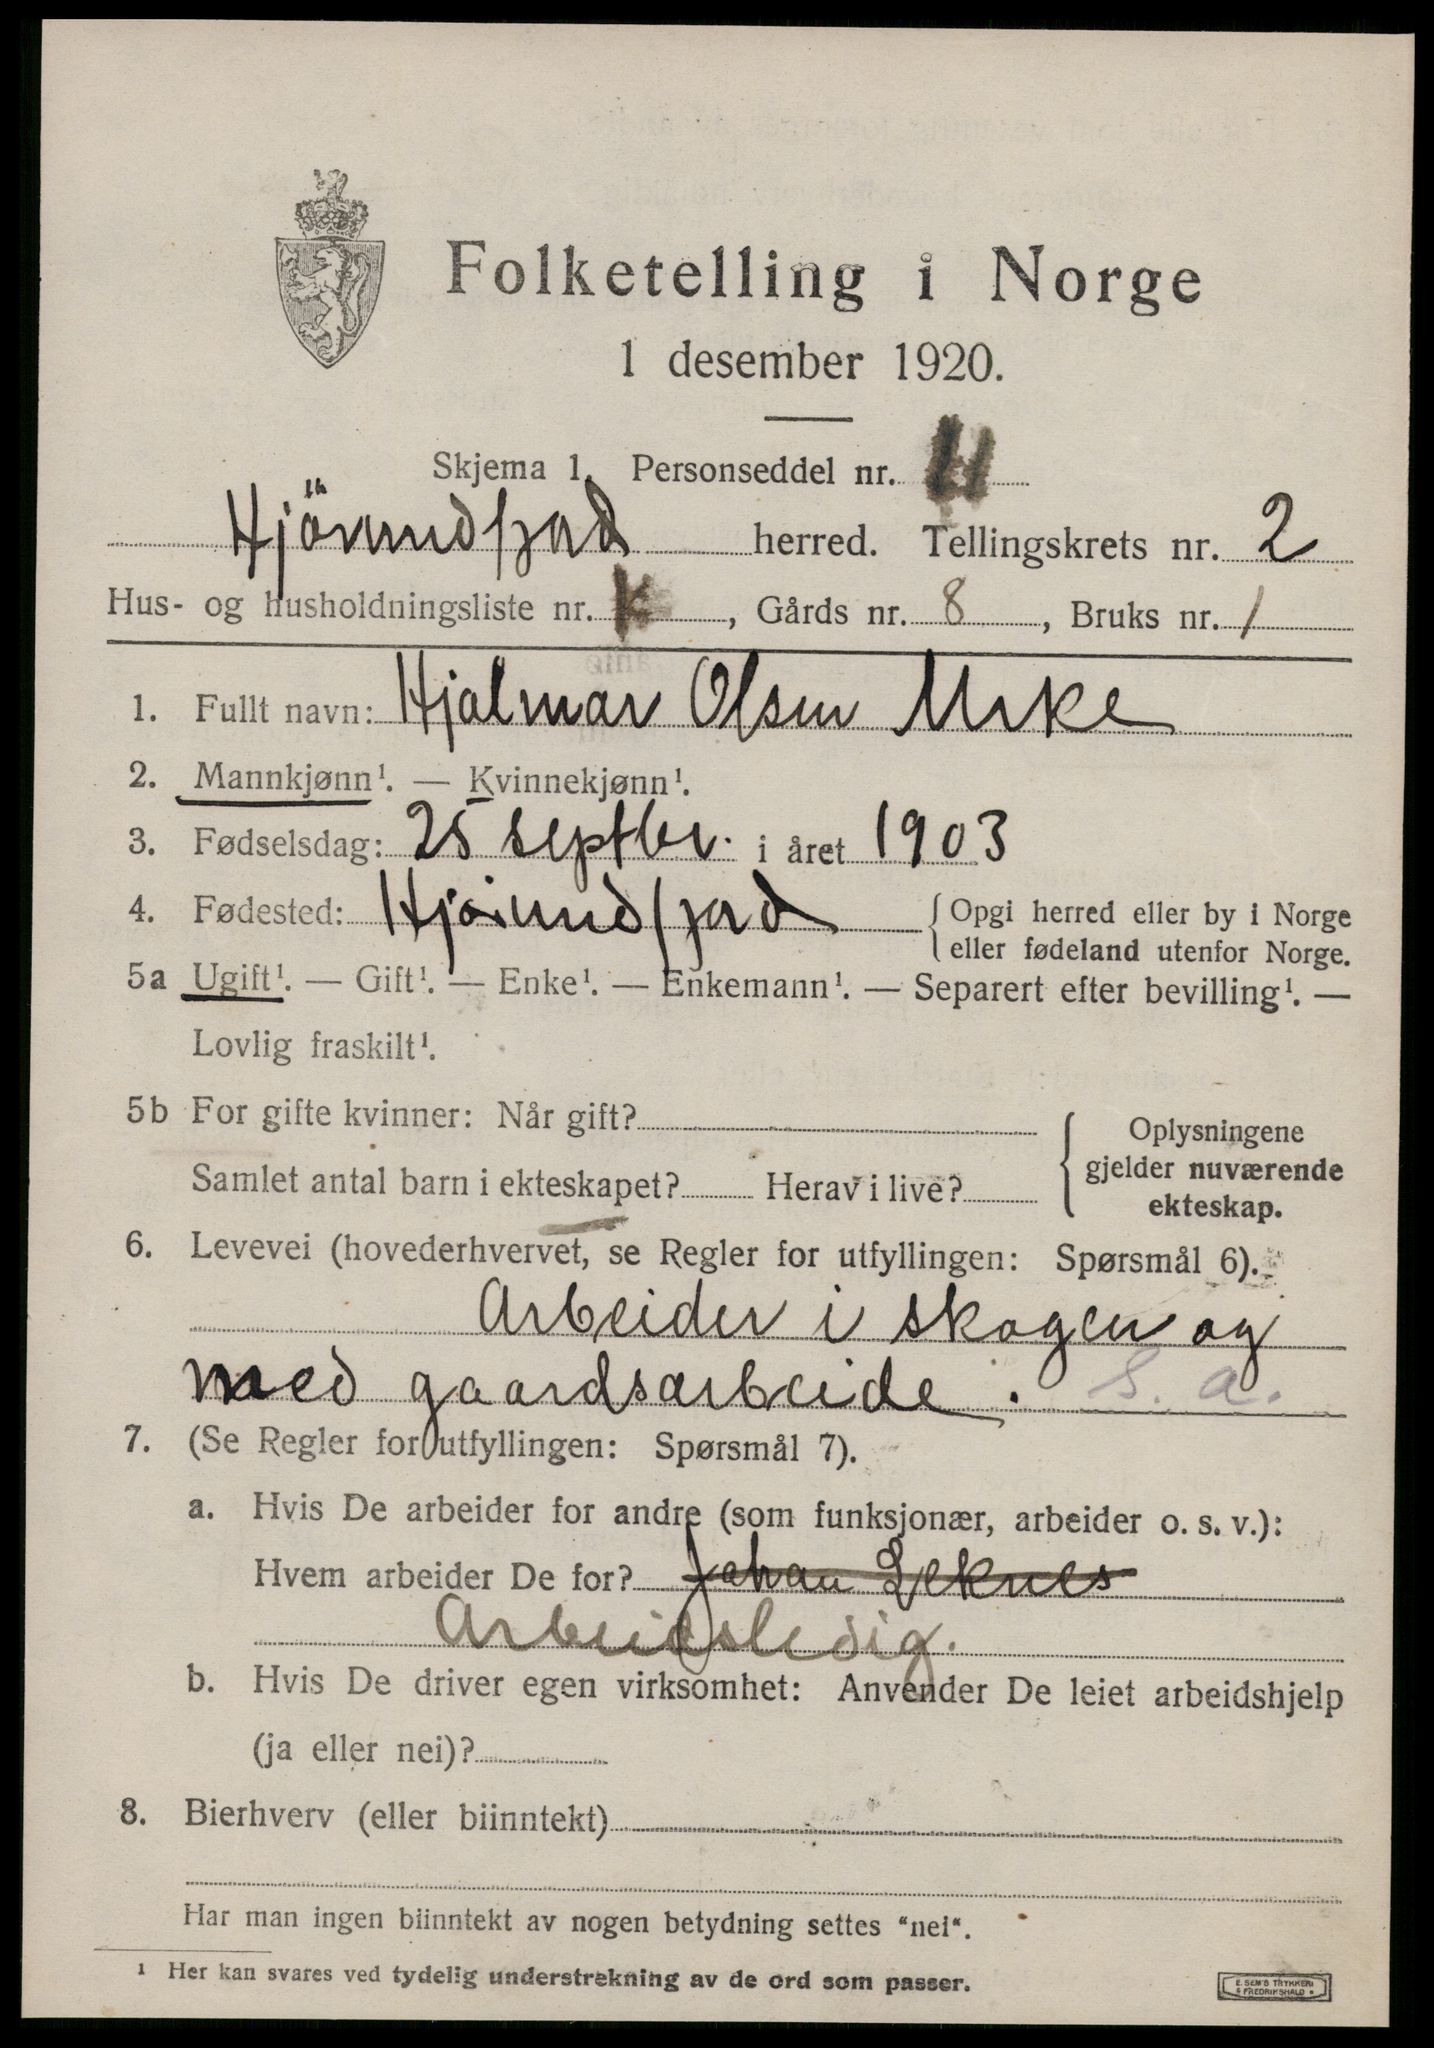 Folketelling i Norge
1 desember 1920.
Skjema 1. Personseddel nr.
Hjörundfjord herred. Tellingskrets nr. 2
Hus- og husholdningsliste nr. , Gårds nr. 8, Bruks nr. 1
1. Fullt navn: Hjalmar Olsen Urke
2. Mannkjønn¹. — Kvinnekjønn¹.
3. Fødselsdag: 25 septbr. i året 1903
4. Fødested: Hjörundfjord {Opgi herred eller by i Norge
eller fødeland utenfor Norge.
5a Ugift¹. — Gift¹. — Enke¹. — Enkemann¹. — Separert efter bevilling¹. —
Lovlig fraskilt¹.
5b For gifte kvinner: Når gift? { Oplysningene
gjelder nuværende
Samlet antal barn i ekteskapet? Herav i live?
ekteskap.
6. Levevei (hovederhvervet, se Regler for utfyllingen: Spørsmål 6).
Arbeider i skogen og
med gaardsarbeide. S. a.
7. (Se Regler for utfyllingen: Spørsmål 7).
a. Hvis De arbeider for andre (som funksjonær, arbeider o. s. v.):
Hvem arbeider De for? Johan Leknes
Arbeidsledig.
b. Hvis De driver egen virksomhet: Anvender De leiet arbeidshjelp
(ja eller nei)?
8. Bierhverv (eller biinntekt)
Har man ingen biinntekt av nogen betydning settes "nei".
¹ Her kan svares ved tydelig understrekning av de ord som passer.
E. SEM'S TRYKKERI
FREDRIKSHALD